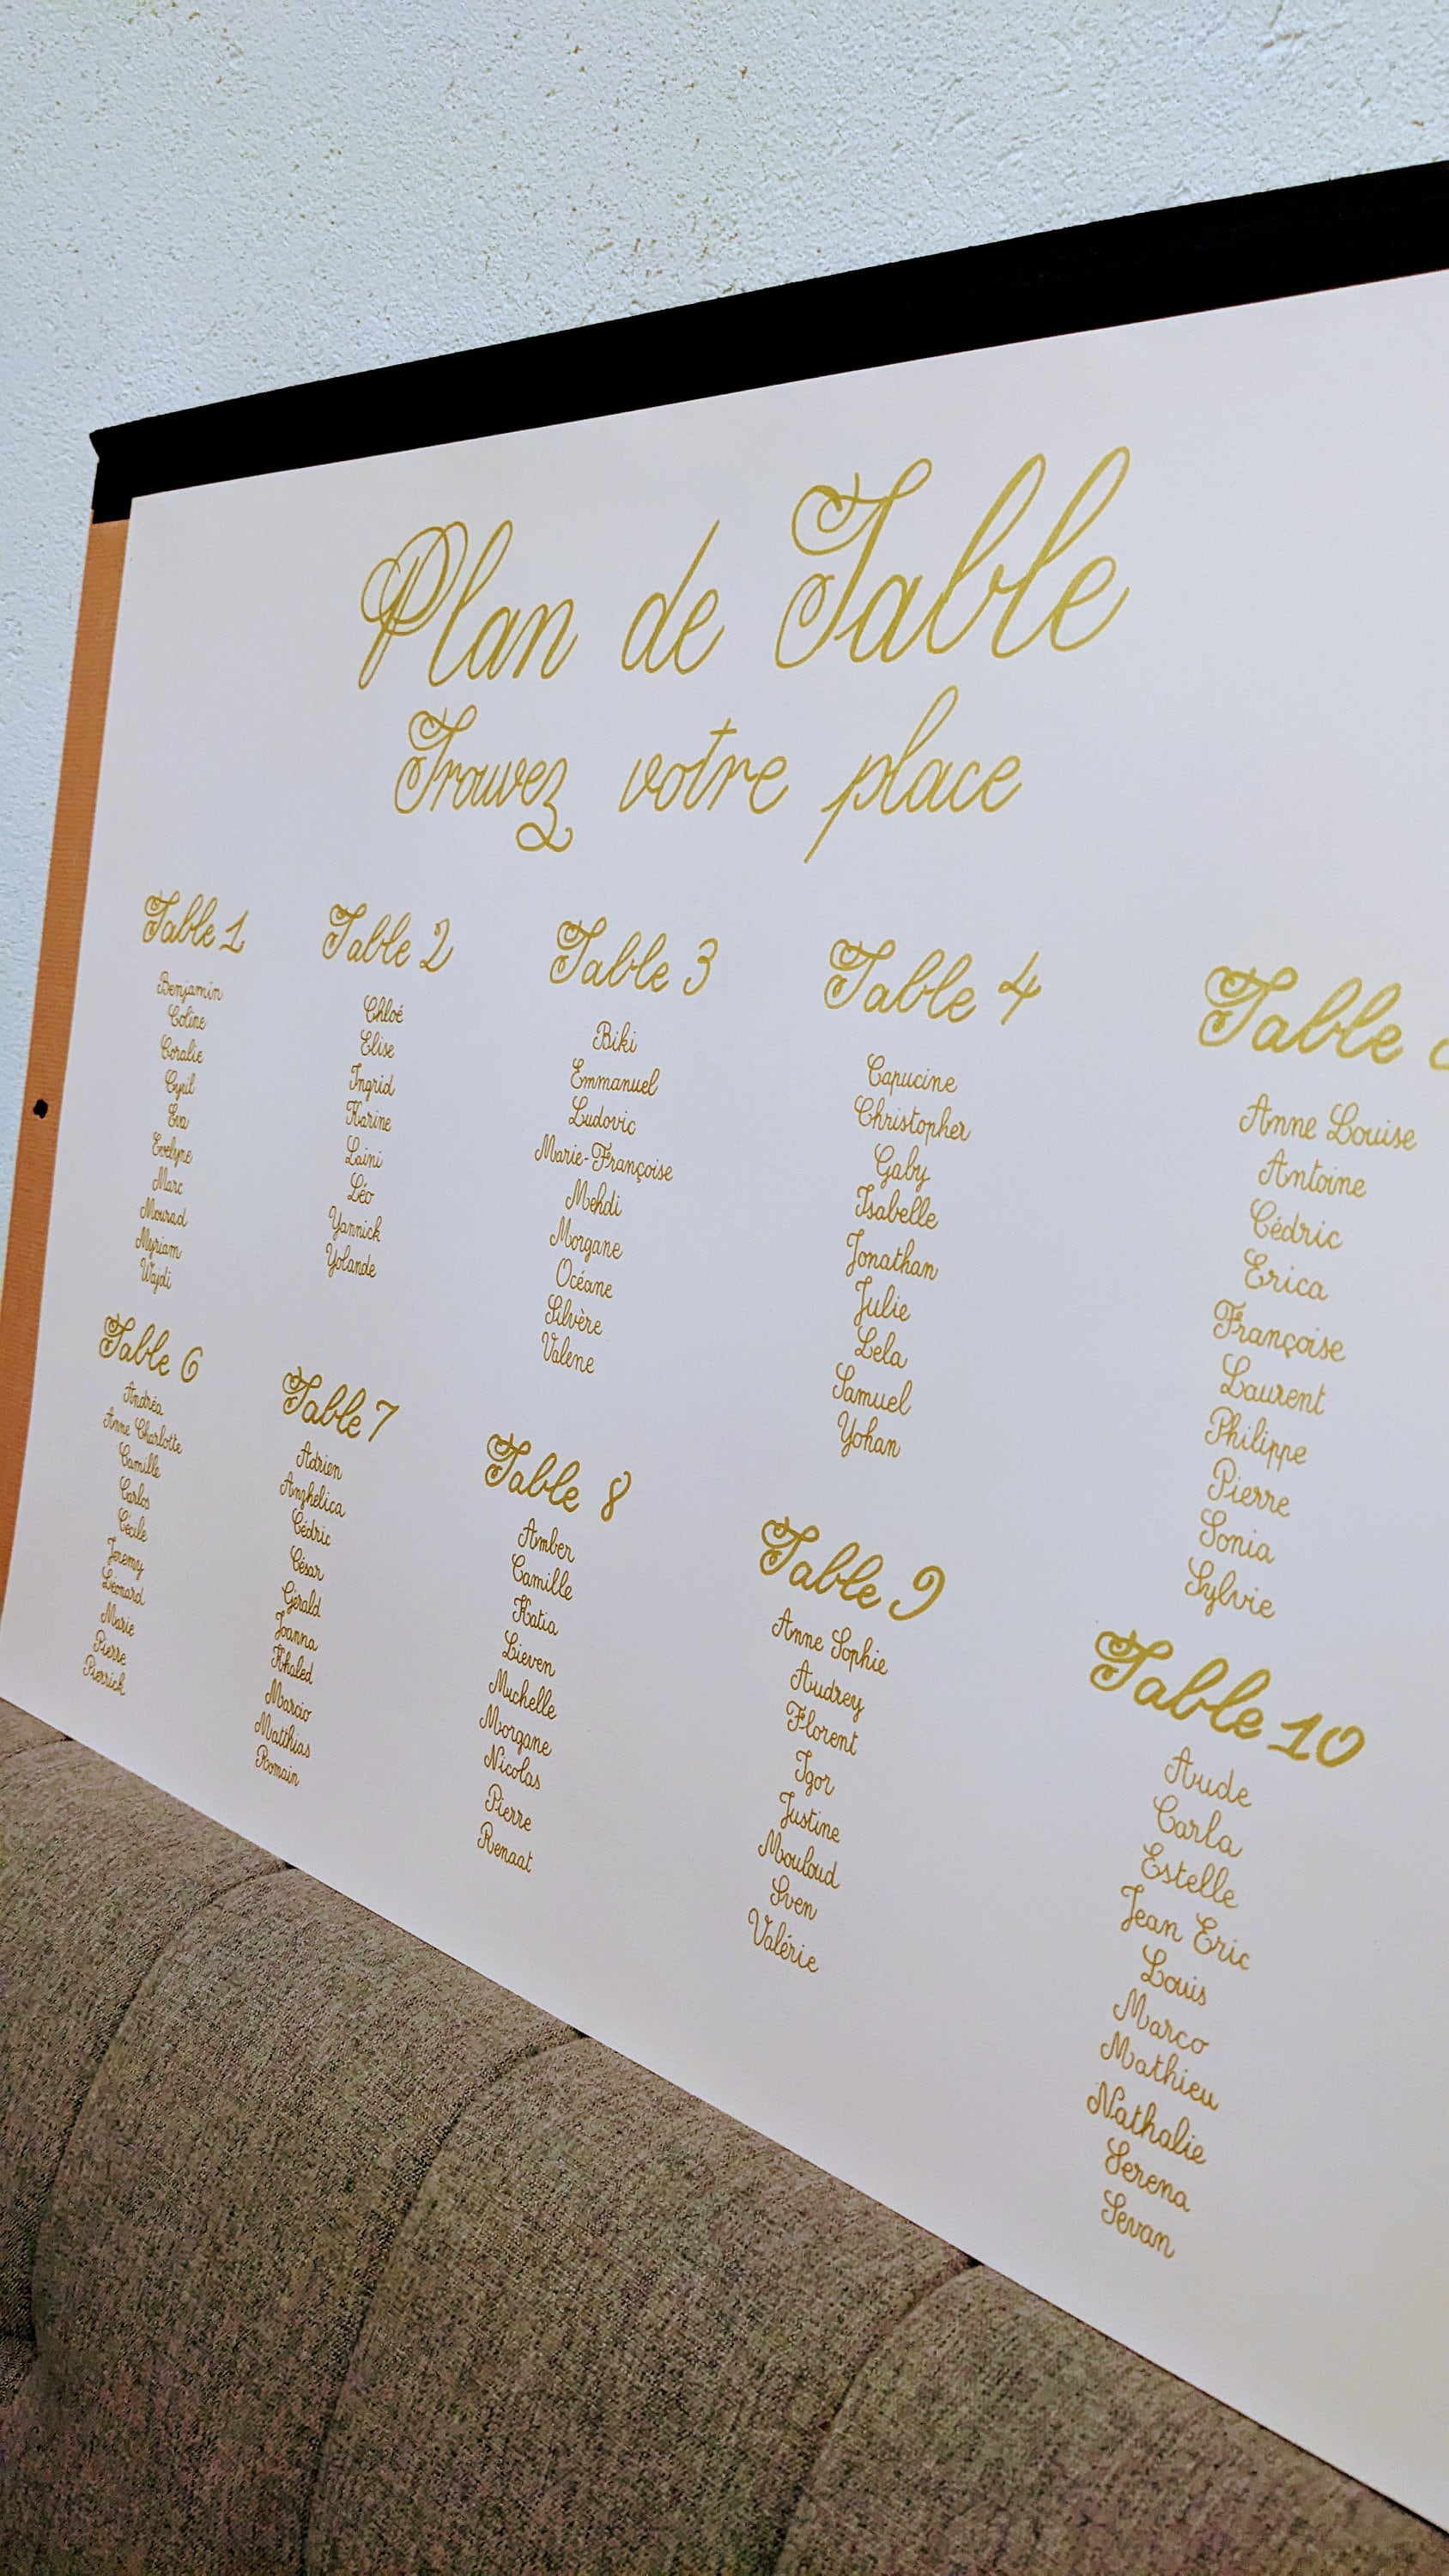 Plan de Table
Trouvez votre place
Table 1
Benjamin
Coline
Coralie
Cyril
Eva
Evelyne
Marc
Mourad
Myriam
Wajdi
Table 2
Chloé
Elise
Ingrid
Karine
Laini
Léo
Yannick
Yolande
Table 3
Biki
Emmanuel
Ludovic
Marie-Françoise
Mehdi
Morgane
Océane
Silvère
Valene
Table 4
Capucine
Christopher
Gaby
Isabelle
Jonathan
Julie
Lela
Samuel
Yohan
Table
Anne Louise
Antoine
Cédric
Erica
Françoise
Laurent
Philippe
Pierre
Sonia
Sylvie
Table 6
Andréa
Anne Charlotte
Camille
Carlos
Cécile
Jeremy
Léonard
Marie
Pierre
Pierrick
Table 7
Adrien
Anzhelica
Cédric
César
Gérald
Joanna
Khaled
Marcio
Matthias
Romain
Table 8
Amber
Camille
Katia
Lieven
Michelle
Morgane
Nicolas
Pierre
Renaat
Table 9
Anne Sophie
Audrey
Florent
Igor
Justine
Mouloud
Sven
Valérie
Table 10
Aude
Carla
Estelle
Jean Eric
Louis
Marco
Mathieu
Nathalie
Serena
Sevan